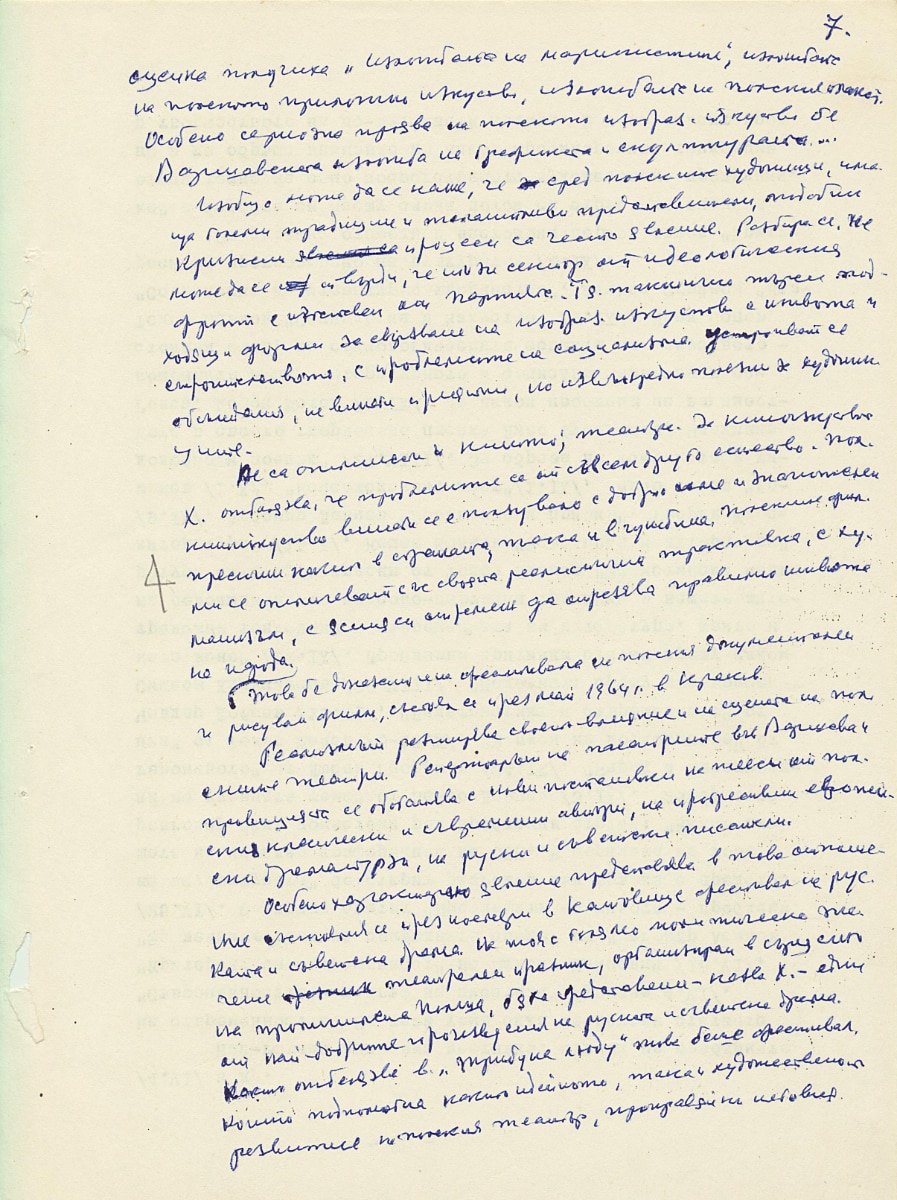 7.
оценка получиха „Изложбата на маринистите", изложбата
на полското приложно изкуство, изложбата на полския плакат.
Особено сериозна проява на полското изобраз. изкуство бе
Варшавската изложба на графиката и скулптурата...
Изобщо може да се каже, че сред полските художници, има-
ща богати традиции и талантливи представители, подобни
кризисни процеси са често явление. Разбира се, не
може да се твърди, че този сектор от идеологическия
фронт е изоставен от партията. Тя тактично търси под-
ходящи форми за свързване на изобраз. изкуство с живота и
строителството, с проблемите на социализма. Устройват се
обсъждания, не винаги гладки, но извънредно полезни за художни-
ците.
Не са отминати и киното, театъра. За киноизкуството
Х. отбелязва, че проблемите са от съвсем друго естество. Пол.
киноизкуство винаги се е ползувало с добро име и значителен
престиж както в страната, така и в чужбина. Полските фил-
ми се отличават със своята реалистична трактовка, с ху-
манизъм, с ясния си стремеж да отразява правилно живота
на народа.
4
Това бе доказано и на фестивала на полския документален
и рисуван филм, състоял се през май 1964 г. в Краков.
Реализмът разширява своето влияние и на сцената на пол-
ските театри. Репертоарът на театрите във Варшава и
провинцията се обогатява с нови постановки на пиеси от пол-
ския класически и съвременни автори, на прогресивни европей-
ски драматурзи, на руски и съветски писатели.
Особено характерно явление представлява в това отноше-
ние състоялия се през ноември в Катовице фестивал на рус-
ката и съветска драма. На тоя с голямо политическо зна-
чение театрален празник, организиран в сърцето
на промишлена Полша, бяха представени - казва Х. - едни
от най-добрите произведения на руската и съветска драма.
Както отбелязва в. „Трибуна люду" това беше фестивал,
който подпомогна както идейното, така и художественото
развитие на полския театър, проправяйки неговия